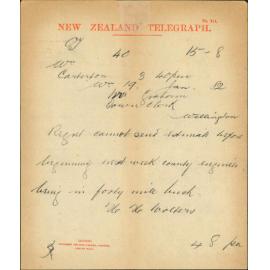 NEW ZEALAND TELEGRAPH.
40 15-8
Carterton 3 40pm
19 Jan. 12
Mr Graham
Town Clerk
Wellington
Regret cannot send estimate before
beginning next week county engineer
living in forty mile bush
4 8 pm